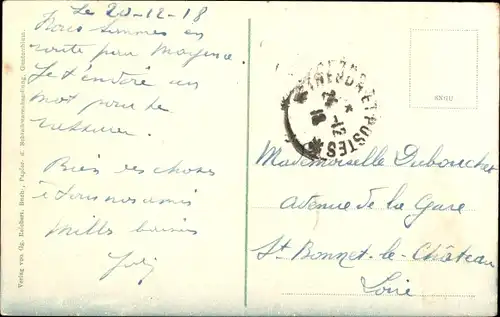 Le 20-12-18
Nous sommes en
route pour Mayence.
Je t'
mot pour te
rassurer.
Bien des choses
à tous nos amis
Mille baisers
TRÉSOR ET POSTES
24 12 18
Mademoiselle
Avenue de la Gare
St Bonnet-le-Château
Loire
Verlag von Gg. Reichert, Buch-, Papier- u. Schreibwarenhandlung,